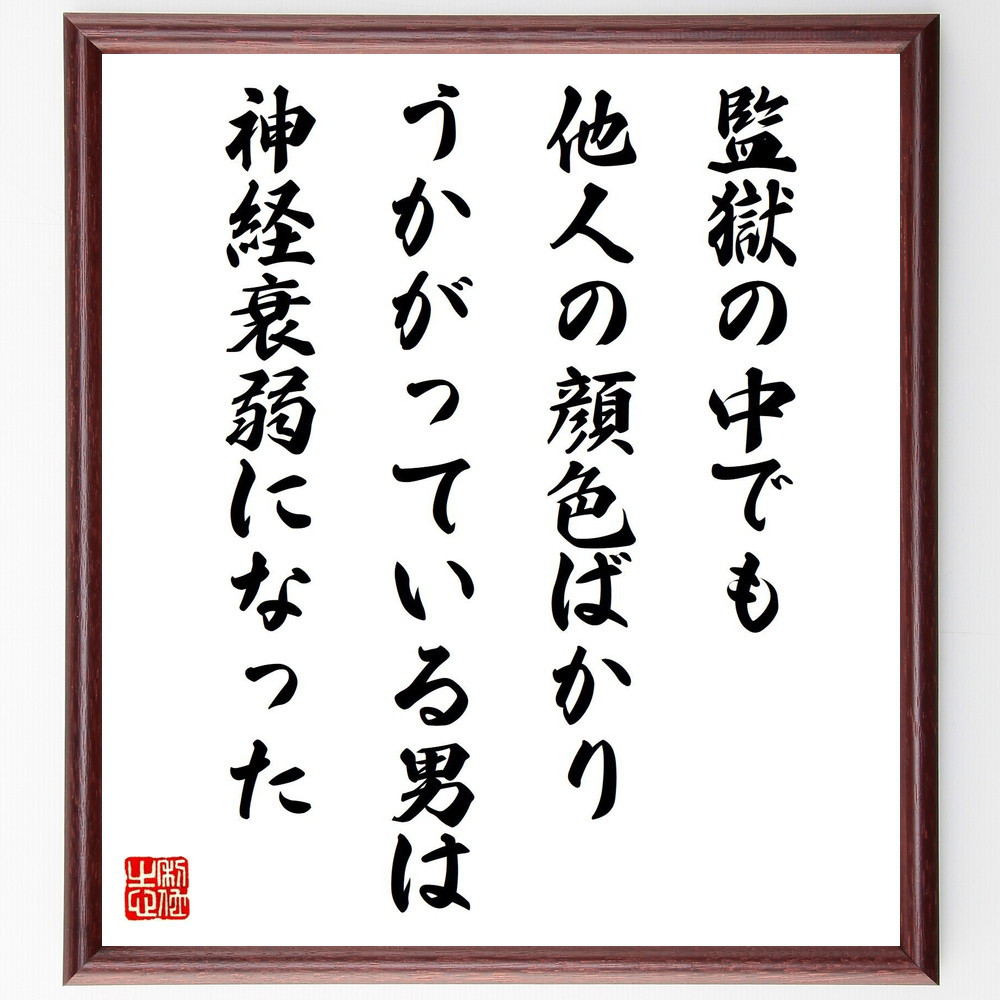 監獄の中でも
他人の顔色ばかり
うかがっている男は
神経衰弱になった